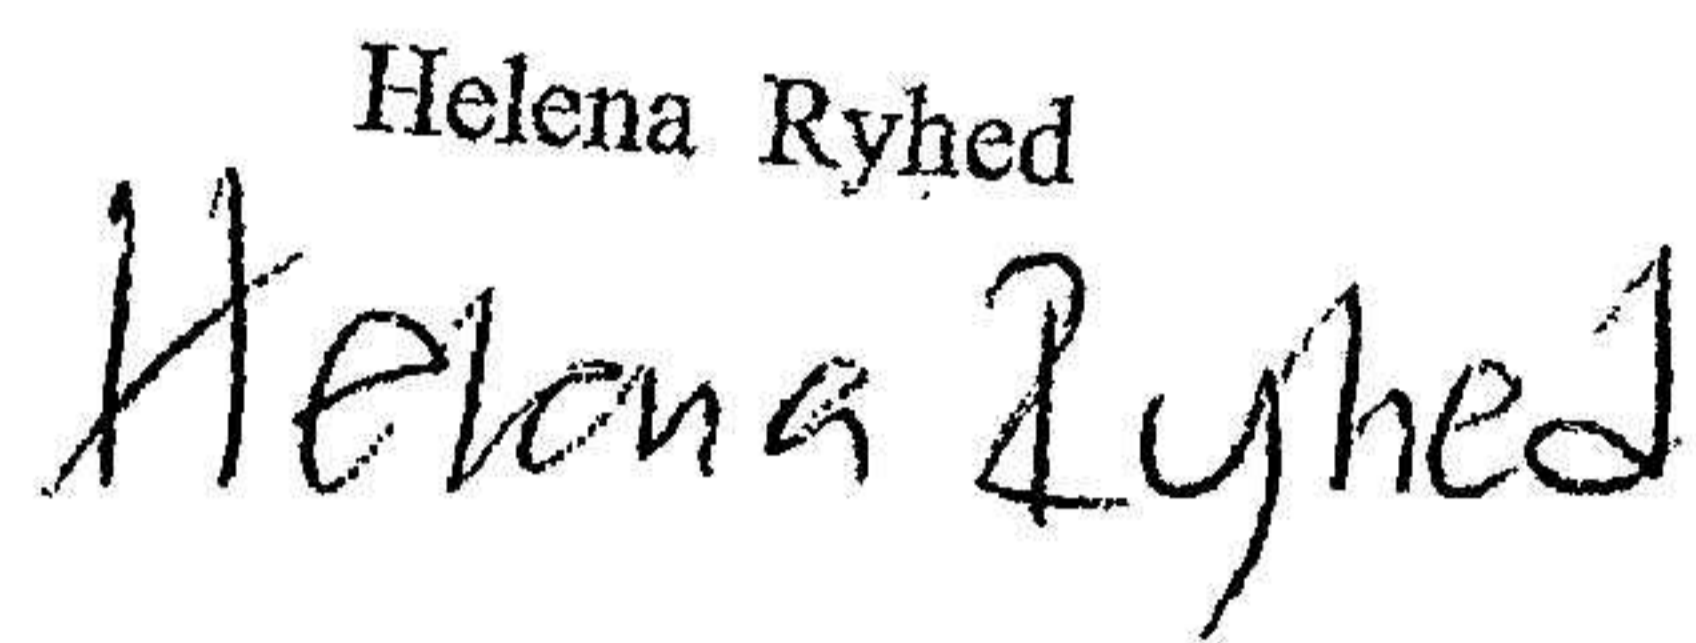 Helena Ryhed
Helena Ryhed